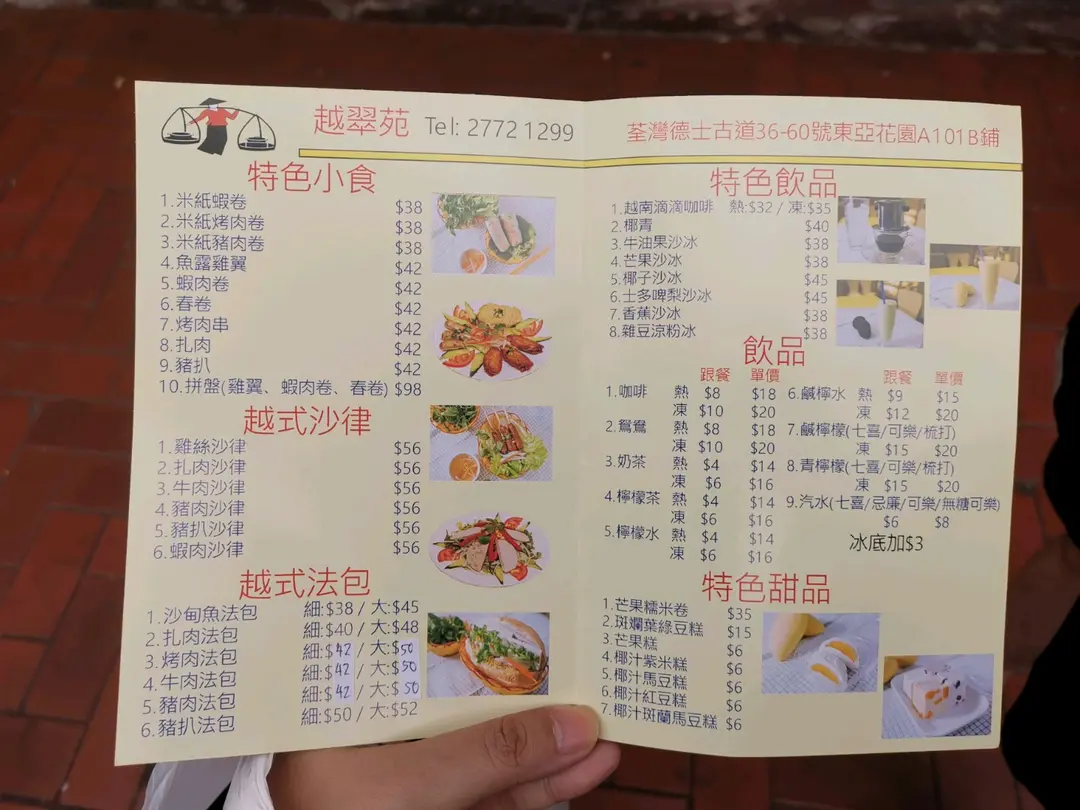 越翠苑 Tel: 2772 1299
特色小食
1.米紙蝦卷 $38
2.米紙烤肉卷 $38
3.米紙豬肉卷 $38
4.魚露雞翼 $42
5.蝦肉卷 $42
6.春卷 $42
7.烤肉串 $42
8.扎肉 $42
9.豬扒 $42
10.拼盤(雞翼、蝦肉卷、春卷) $98
越式沙律
1.雞絲沙律 $56
2.扎肉沙律 $56
3.牛肉沙律 $56
4.豬肉沙律 $56
5.豬扒沙律 $56
6.蝦肉沙律 $56
越式法包
1.沙甸魚法包 細:$38 / 大:$45
2.扎肉法包 細:$40 / 大:$48
3.烤肉法包 細:$42 / 大:$50
4.牛肉法包 細:$42 / 大:$50
5.豬肉法包 細:$42 / 大:$50
6.豬扒法包 細:$50 / 大:$52
荃灣德士古道36-60號東亞花園A101B鋪
特色飲品
1.越南滴滴咖啡 熱:$32 / 凍:$35
2.椰青 $40
3.牛油果沙冰 $38
4.芒果沙冰 $38
5.椰子沙冰 $45
6.士多啤梨沙冰 $45
7.香蕉沙冰 $38
8.雜豆涼粉冰 $38
飲品
跟餐 單價
1.咖啡 熱 $8 $18
凍 $10 $20
2.鴛鴦 熱 $8 $18
凍 $10 $20
3.奶茶 熱 $4 $14
凍 $6 $16
4.檸檬茶 熱 $4 $14
凍 $6 $16
5.檸檬水 熱 $4 $14
凍 $6 $16
跟餐 單價
6.鹹檸水 熱 $9 $15
凍 $12 $20
7.鹹檸檬(七喜/可樂/梳打)
凍 $15 $20
8.青檸檬(七喜/可樂/梳打)
凍 $15 $20
9.汽水(七喜/忌廉/可樂/無糖可樂)
$6 $8
冰底加$3
特色甜品
1.芒果糯米卷 $35
2.斑斕葉綠豆糕 $15
3.芒果糕 $6
4.椰汁紫米糕 $6
5.椰汁馬豆糕 $6
6.椰汁紅豆糕 $6
7.椰汁斑蘭馬豆糕 $6